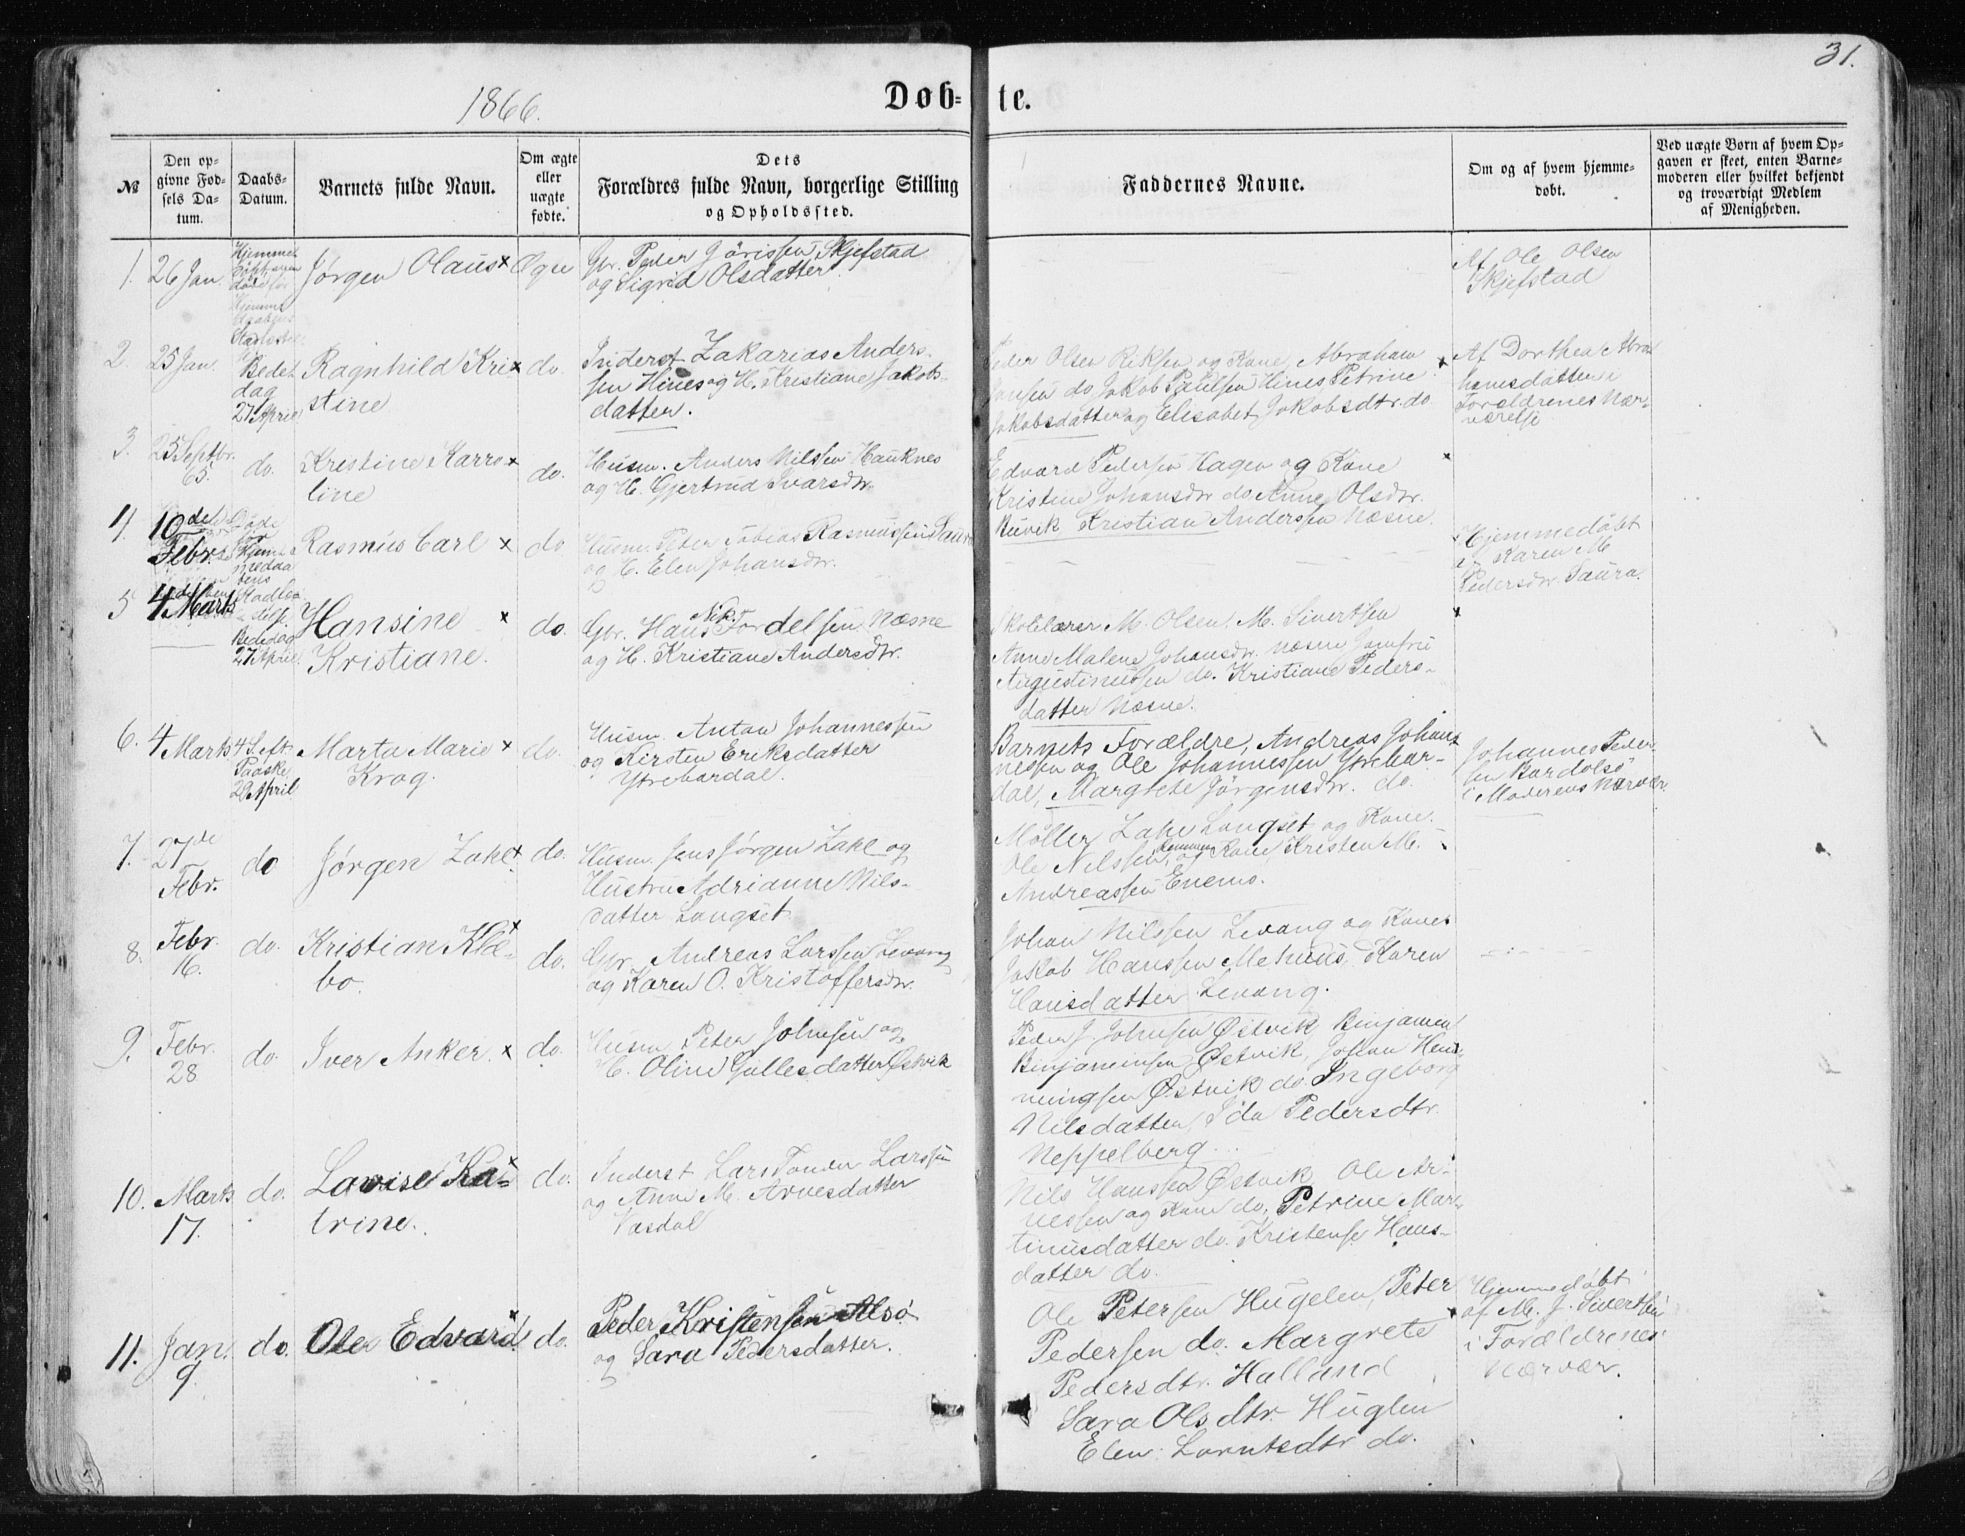 31.
1866.
Døb-te.
№
Den op-
givne Fød-
sels Da-
tum.
Daabs-
Datum.
Barnets fulde Navn.
Om ægte
eller
uægte
fødte.
Dets
Forældres fulde Navn, borgerlige Stilling
og Opholdssted.
Faddernes Navne.
Om og af hvem hjemme-
døbt.
Ved uægte Børn af hvem Op-
gaven er skeet, enten Barne-
moderen eller hvilket bekjendt
og troværdigt Medlem
af Menigheden.
1. 26 Jan.
Hjemme
Jørgen Olaus x
Gbr. Peder Jörissen Skjefstad
og Sigrid Olsdatter
Af Ole Olsen
Skjefstad
2. 25 Jan.
Bede-
dag
27 April
Ragnhild Kri x
stine
do.
Inderst Zakarias Anders-
sen Hines og H. Kristiane Jakobs-
datter.
Peder Olsen og Kone, Abraham
Jansen do. Jakob Paulsen Hines Petrine
Jakobsdatter og Elisabet Jakobsdtr. do.
Af Dorthea Abra
hamsdatter i
Forældrenes Nær-
værelse
3. 25 Septbr.
65.
do.
Kristine Karro x
line
do.
Husm. Anders Nilsen Hauknes
og H. Gjertrud Ivarsdtr.
Edvard Pedersen Hagen og Kone
Kristine Johansdtr. do. Anne Olsdtr.
Buvik Kristian Anderssen Næsne.
4. 10de
Febr.
Rasmus Carl x
do.
Husm. Peter Tobias Rasmussen Saura
og H. Elen Johansdtr.
Hjemmedøbt
af Karen M.
Pedersdtr. Saura.
5 4 Marts
Bededag
27 April
Hansine x
Kristiane.
do.
Gbr. Hans Nik. Fordelsen Næsne
og H. Kristiane Andersdtr.
Skolelærer M. Olsen, M. Sivertsen
Anne Malene Johansdtr. Næsne Jomfru
Augustinussen do. Kristiane Peders-
datter Næsne.
6. 4 Marts
4 S. Aft.
Paaske
29 April
Marta Marie x
Krog.
do.
Husm. Anton Johannessen
og Kirsten Eriksdatter
Ytrebardal.
Barnets Forældre, Andreas Johan-
nessen og Ole Johannessen Ytrebar-
dal, Margrete Jörgensdtr. do.
Johannes Peder
sen Bardalsö
i Moderens Nærvær
7. 27de
Febr.
do
Jørgen Zahl x
do.
Husm. Jens Jørgen Zahl og
Hustru Adrianne Nils-
datter Langset.
Møller Zahl Langset og Kone.
Ole Nilssen og Kone Kristen M.
Andreassen Enemo.
8. Febr.
16.
do.
Kristian Klæ- x
bo.
do.
Gbr. Andreas Larssen Levang
og Karen O. Kristoffersdtr.
Johan Nilssen Levang og Kone
Jakob Hanssen Mehuus Karen
Hansdatter Levang.
9. Febr.
28
do.
Iver Anker. x
do.
Husm. Peter Johnsen og
H. Oline Gullesdatter Østvik
Peder J. Johnsen Østvik, Binjamen
Binjaminsen Østvik, Johan Hen-
ningsen Østvik do. Ingeborg
Nilsdatter, Ida Pedersdtr.
Neppelberg.
10. Marts
17.
do.
Lovise Ka- x
trine.
do.
Inderst Lars Tonder Larssen
og Anne M. Arnesdatter
Vasdal
Nils Hanssen Østvik Ole Ar-
nessen og Kone do. Petrine Mar-
tinusdatter do. Kristense Hans-
datter do.
11. Jan.
9.
do.
Ole Edvard x
do.
Peder Kristensen Alsö
og Sara Pedersdatter.
Ole Petersen Hugelen, Peter
Pedersen do. Margrete
Pedersdtr. Halland
Sara Olsdtr. Huglen
Elen Lorntsdtr do.
Hjemmedøbt
af M. J. Sivertsen
i Forældrenes
Nærvær.